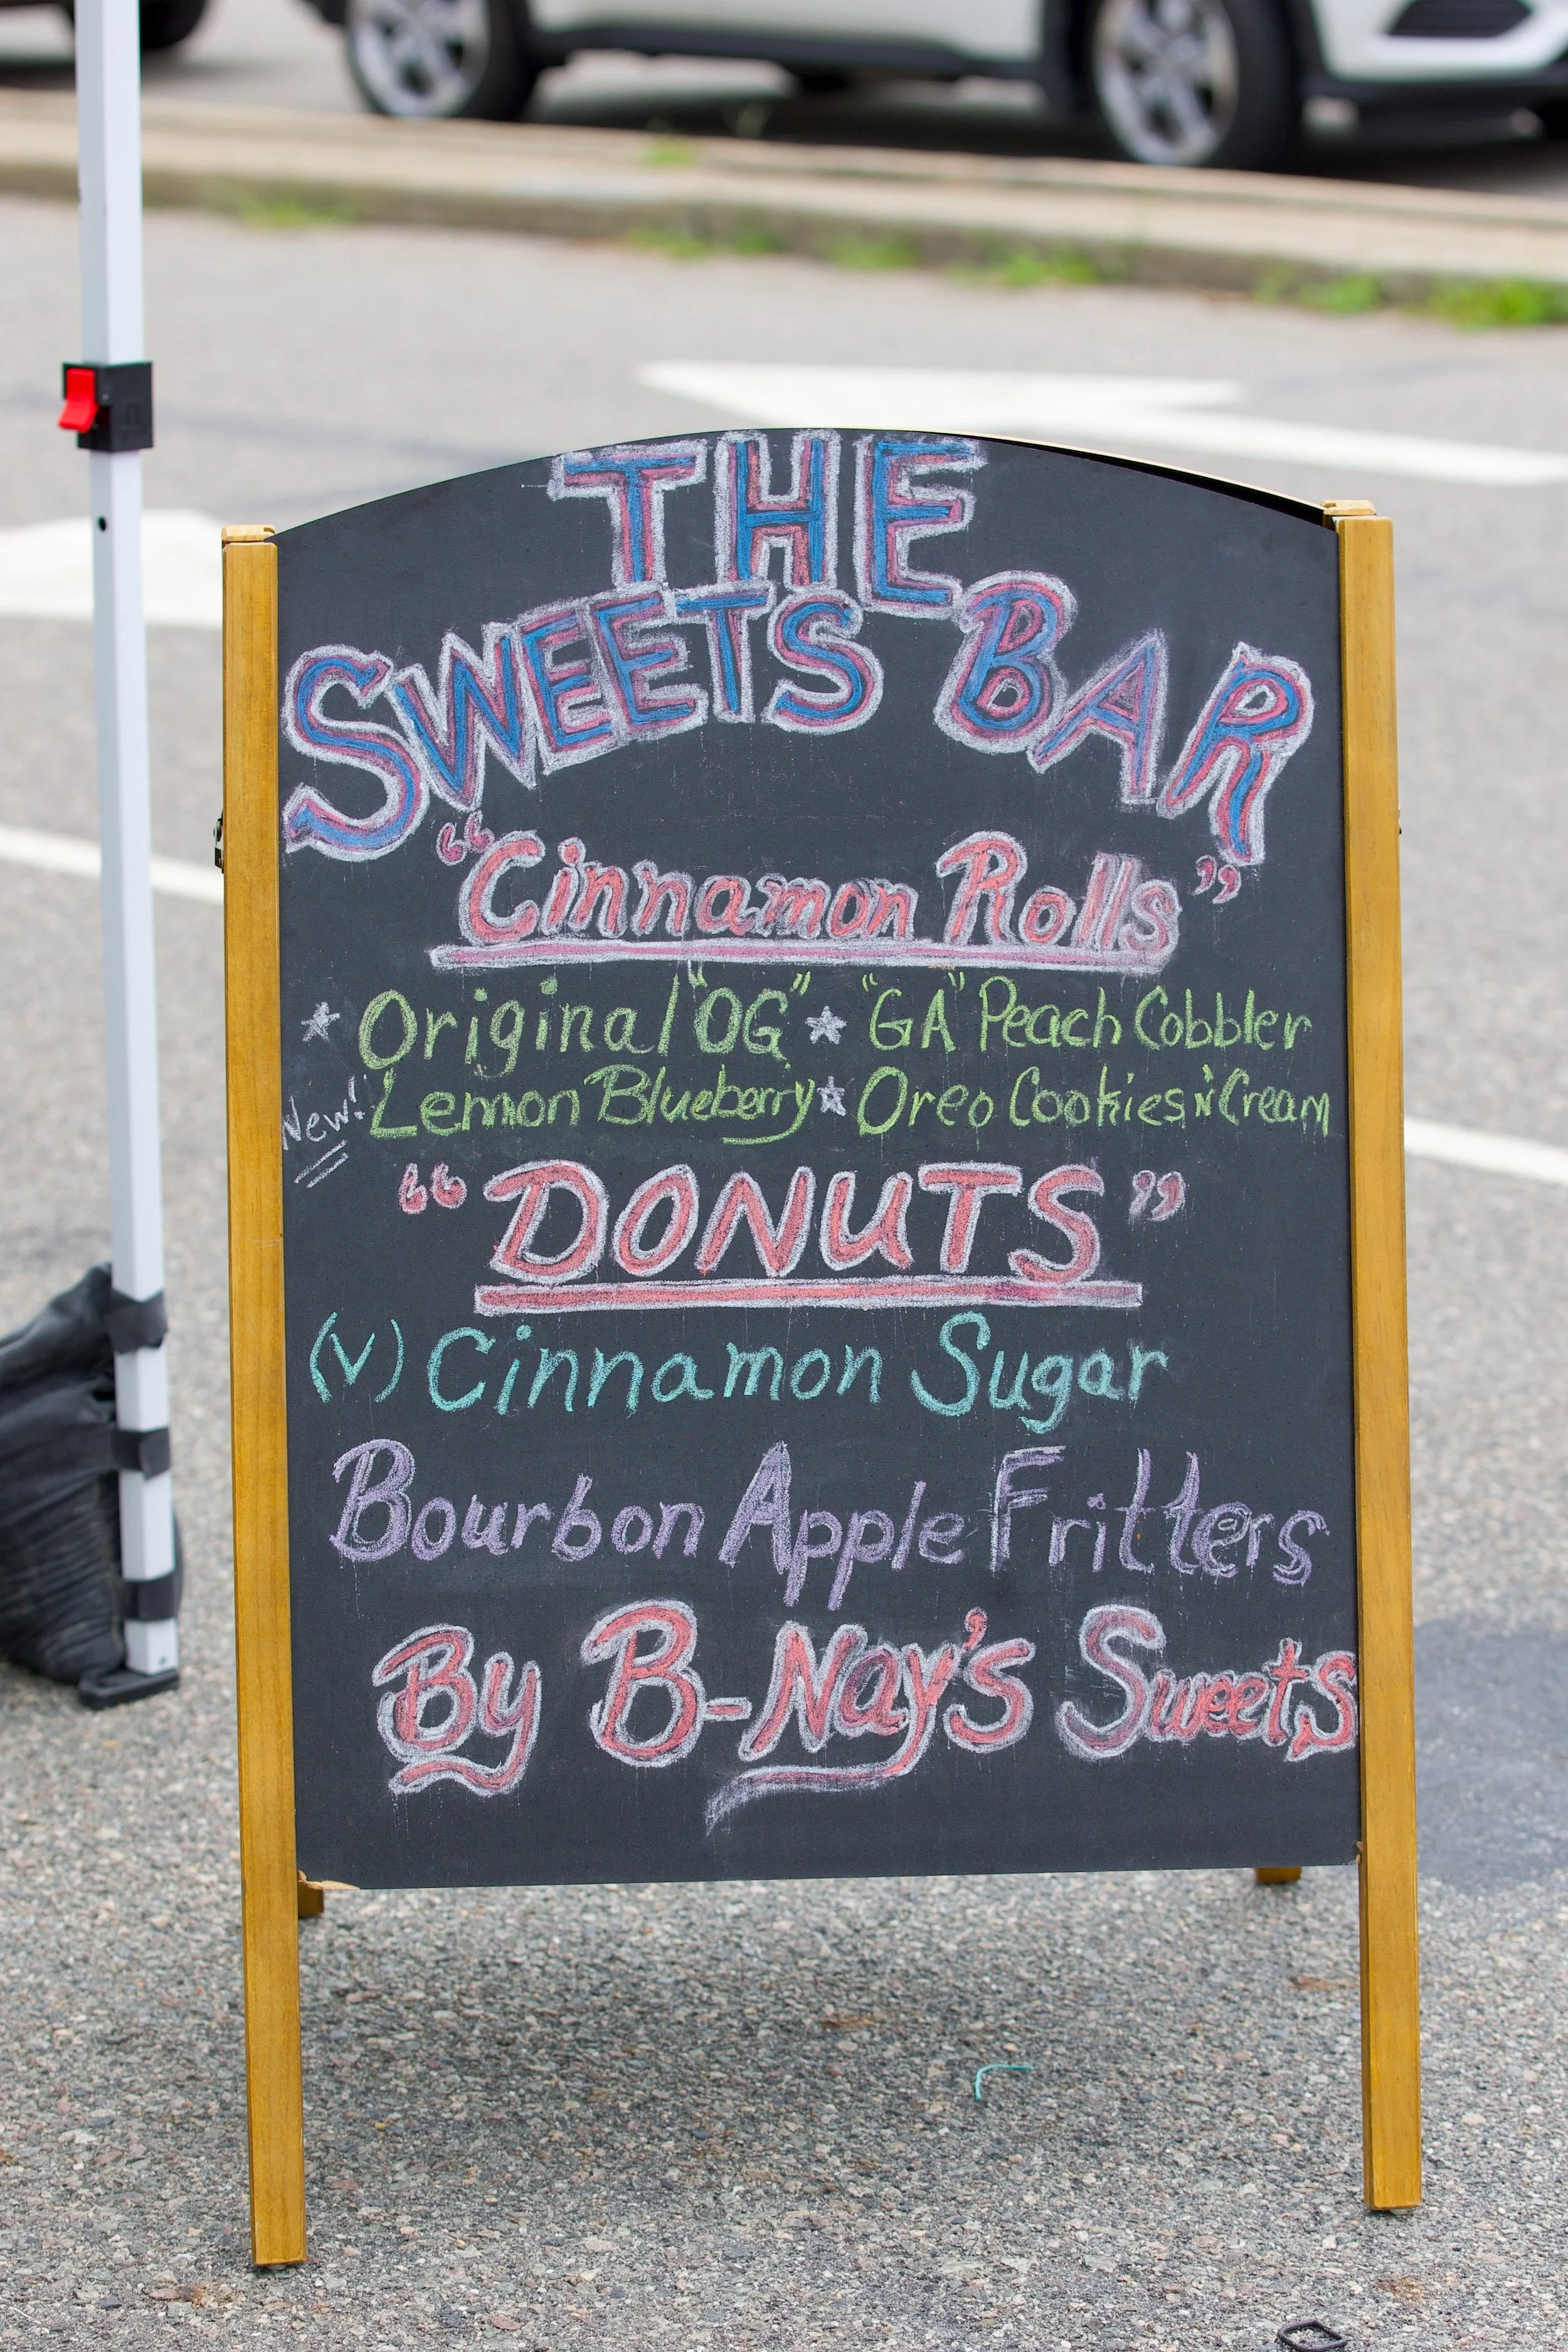 THE
SWEETS BAR
“Cinnamon Rolls”
* Original "OG" * "GA" Peach Cobbler
New! Lemon Blueberry * Oreo Cookies N' Cream
“DONUTS”
(V) Cinnamon Sugar
Bourbon Apple Fritters
By B-Nay's Sweets